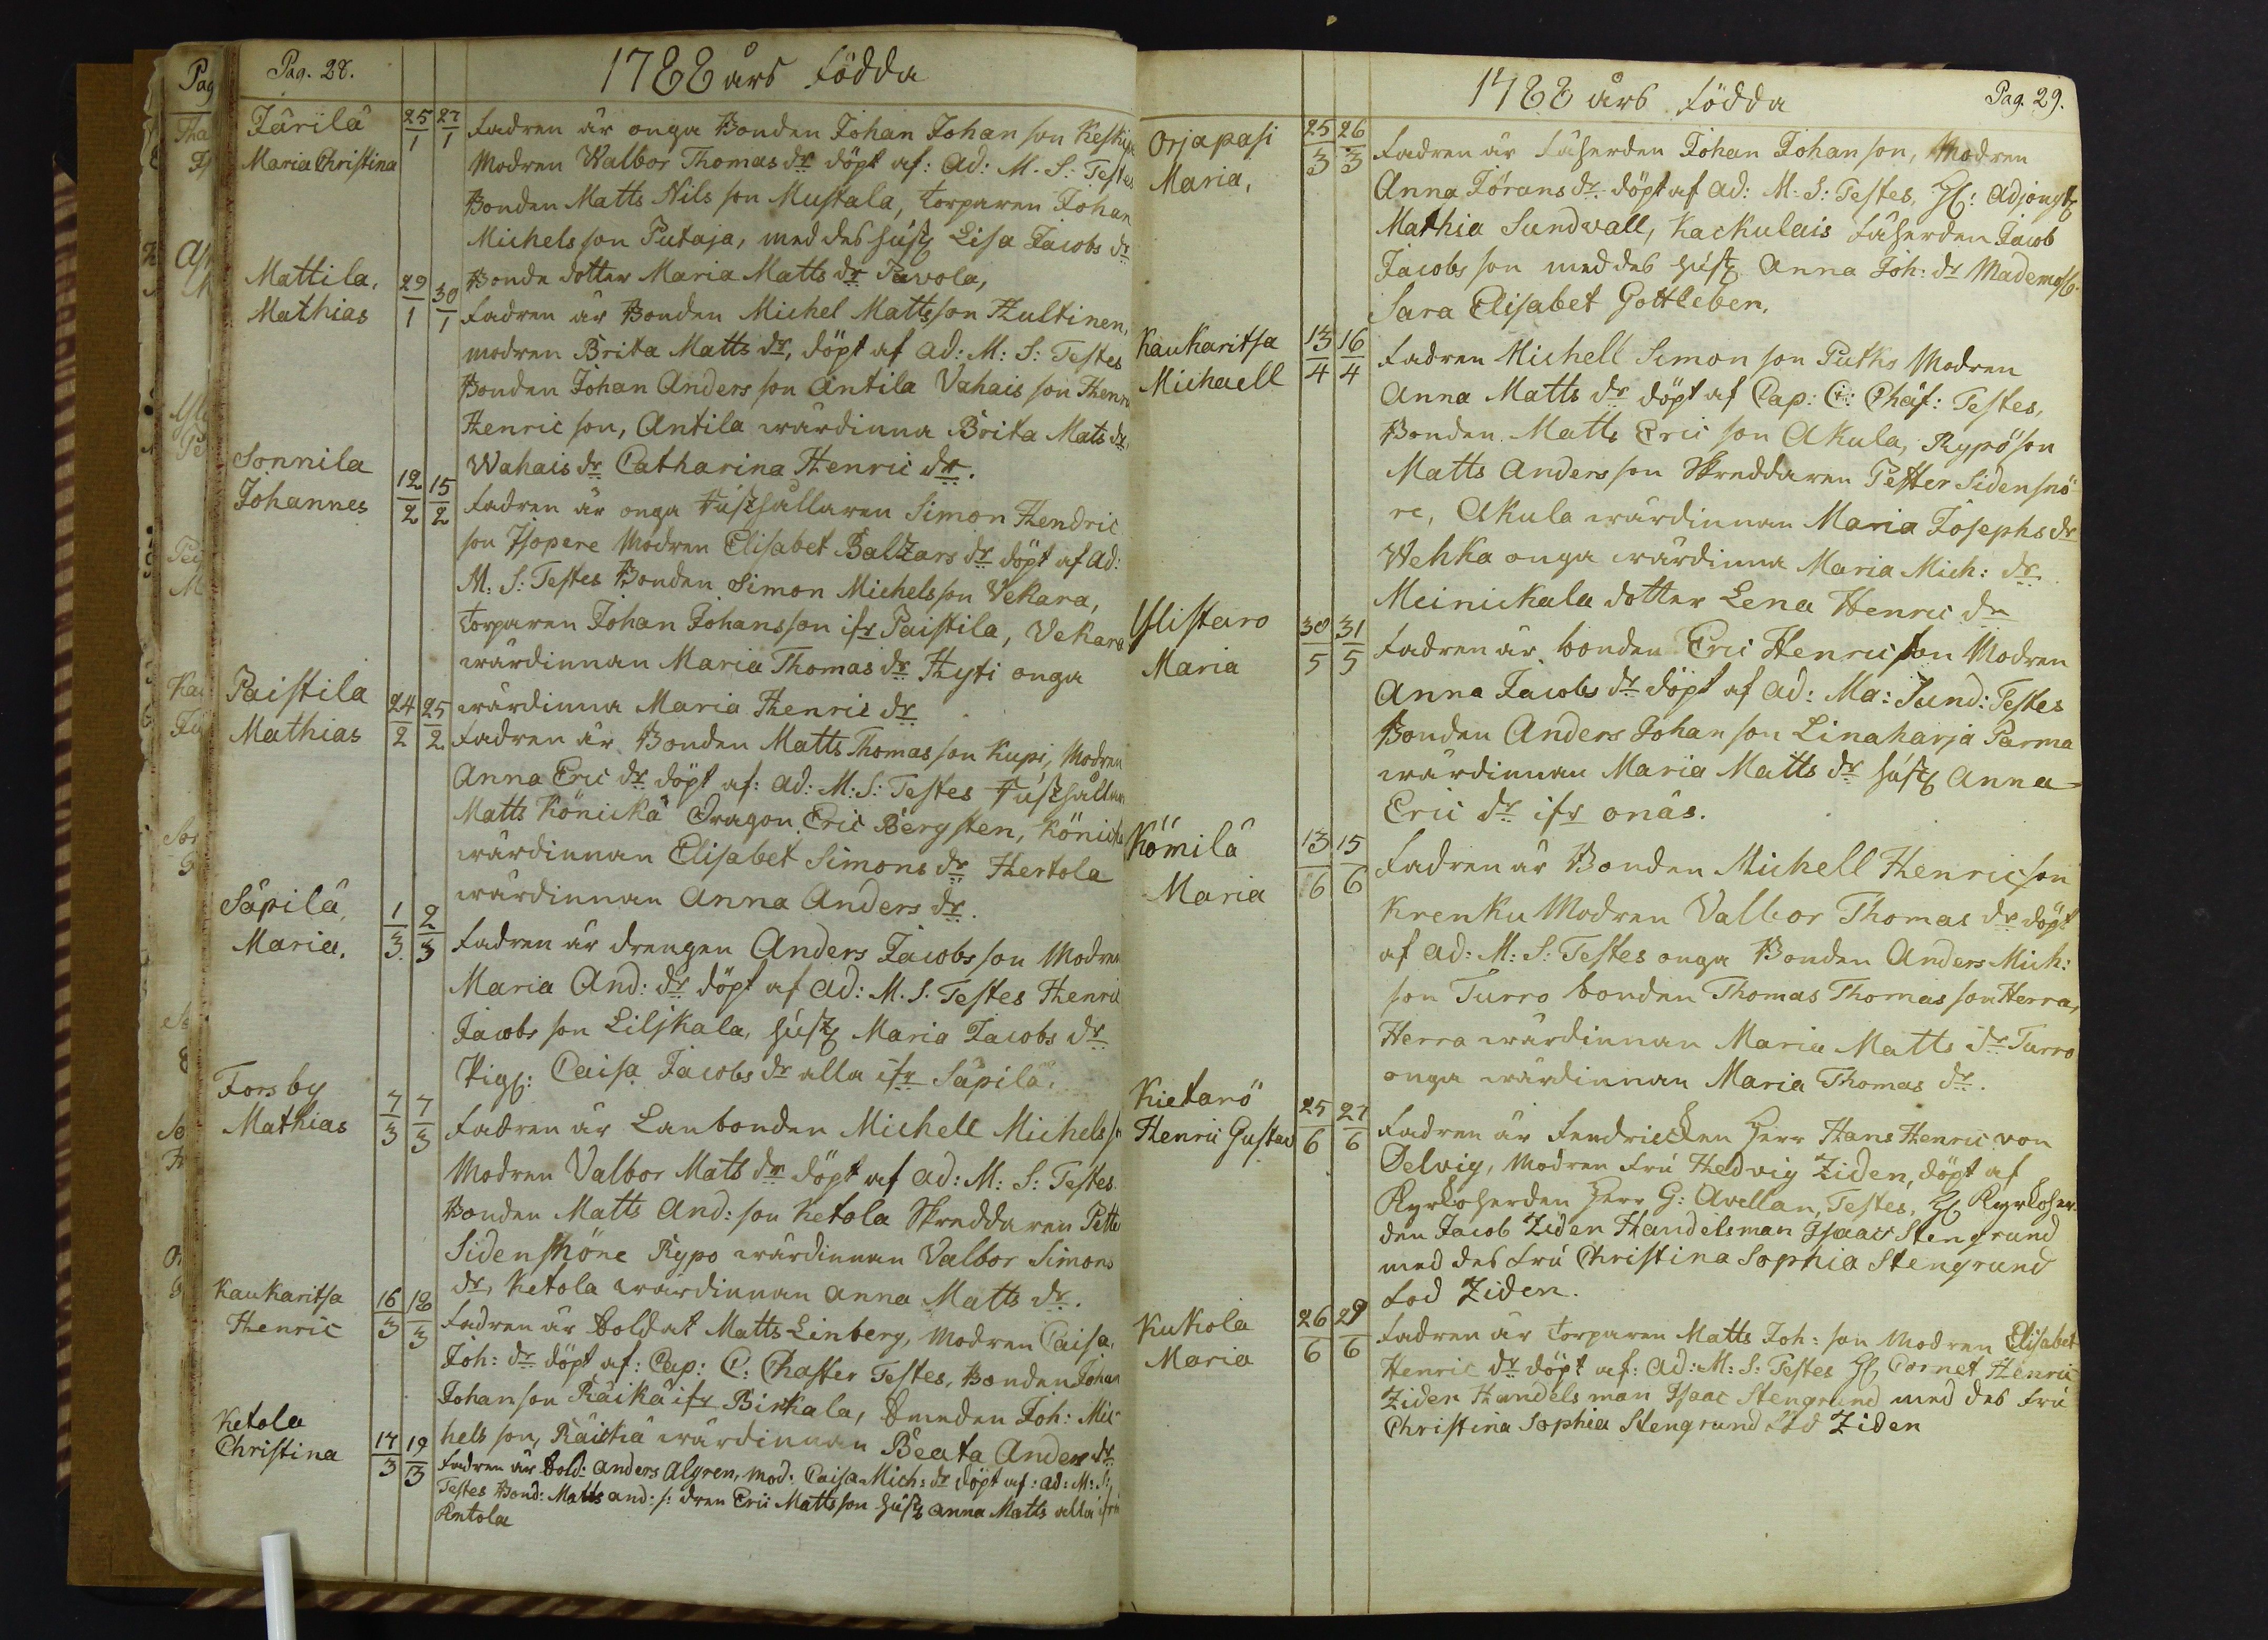 Pag. 28.
1788 års födda
Järilä
Maria Christina
25/1 27/1
fadren är onga Bonden Johan Johan son Keskip
Modren Walbor Thomas dr döpt af: ad: M. S: Testes
Bonden Matts Nils son Mustala, torparen Johan
Michels son Putaja, med des hust Lisa Jacobs dr
Bonde dotter Maria Matts dr Tavola,
Mattila,
Mathias
29/1 30/1
fadren är Bonden Michel Mattsson Hultinen,
modren Brita Matts dr, döpt af ad: M: S: Testes
Bonden Johan Anders son Antila Vahais son Henri
Henric son, Antila wärdinna Brita Mats dr
Wahais dr Catharina Henric dr.
Sonnila
Johannes
12/2 15/2
fadren är onga Rusthållaren Simon Hendric
son Isopere Modren Elisabet Baltzars dr döpt af ad:
M: S: Testes Bonden Simon Michels son Vekara,
torparen Johan Johansson ifr Paistila, Vekara
wärdinnan Maria Thomas dr Hyti onga
wärdinna Maria Henric dr
Paistila
Mathias
24/2 25/2
fadren är Bonden Matts Thomas son Kupi, Modren
Anna Eric dr döpt af: ad: M: S: Testes Rusthållar
Matts Könickä Dragon Eric Bergsten, Könick
wärdinnan Elisabet Simons dr Hertola
wärdinnan Anna Anders dr.
Säpilä,
Maria.
1/3 2/3
fadren är drengen Anders Jacobs son Modren
Maria And: dr döpt af ad: M. S. Testes Henric
Jacobs son Liljkala, hust Maria Jacobs dr
Pig: Caisa Jacobs dr alla ifr Säpilä.
Forsby
Mathias
7/3 7/3
fadren är Lanbonden Michell Michels s
Modren Valbor Mats dr döpt af ad: M: S: Testes.
Bonden Matts And: son Ketola Skreddaren Pette
Sidensnöne Rypo wärdinnan Valbor Simons
dr, Ketola wärdinnan anna Matts dr.
Kaukaritsa
Henric
16/3 18/3
fadren är Soldat Matts Linberg, Modren Caisa
Joh: dr döpt af: Cap: C: Chafter Testes, Bonden Johan
Johan son Räikä ifr Birkala, Smeden Joh: Mic
hels son, Räickä wärdinnan Beata Anders dr
Ketola
Christina
17/3 19/3
fadren är Sold: Anders Algren, mod. Caisa Mich: dr döpt af: ad: M: S:
Testes Bond: Matts and: s: dren Eric Matts son hust Anna Matts alla ifrå
Ketola
1788 års födda
Pag. 29.
Orjapasi
Maria,
25/3 26/3
fadren är fäherden Johan Johan son, Modren
Anna Jörans dr döpt af ad: M: S: Testes, H: adjongt
Mathia Sundwall, Kackulais fäherden Jacob
Jacobs son med des hust Anna Joh: dr Mademoss:
Sara Elisabet Gottleben.
Kaukaritsa
Michaell
13/4 16/4
fadren Michell Simon son Putko Modren
Anna Matts dr döpt af Cap: C: Chäf: Testes,
Bonden Matts Eric son Akula, Rypö son
Matts Anders son Skreddaren Petter Sidensnö
re, Akula wärdinnan Maria Josephs dr
Wehka onga wärdinna Maria Mich: dr
Meinickala dotter Lena Henric dr
Ylistaro
Maria
30/5 31/5
fadren är bonden Eric Henric son Modren
Anna Jacobs dr döpt af ad: Ma: Sund: Testes
Bonden Anders Johan son Linaharja Parma
wärdinnan Maria Matts dr hust Anna
Eric dr ifr onäs.
Kömilä
Maria
13/6 15/6
fadren är Bonden Michell Henric son
Krenku Modren Valbor Thomas dr döpt
af ad: M: S: Testes onga Bonden Anders Mich:
son Turro bonden Thomas Thomas son Herra,
Herra wärdinnan Maria Matts dr Turro
onga wärdinnan Maria Thomas dr.
Kietarö
Henric Gustav
25/6 27/6
fadren är fendricken Herr Hans Henric von
Delvig, Modren fru Hedvig Ziden, döpt af
Kyrkoherden Herr G: Avellan, Testes, H Kyrkoher
den Jacob Ziden Handelsman Isaac Stengrund
med des fru Christina Sophia Stengrund
fod Ziden.
Kukola
Maria
26/6 29/6
fadren är torparen Matts Joh: son Modren Elisabet
Henric dr döpt af: ad: M: S: Testes H Cornet Henric
Ziden Handels man Isaac Stengrund med des fru
Christina Sophia Stengrund föd Ziden